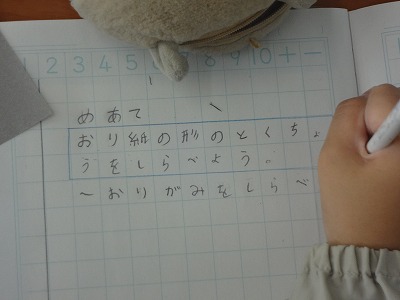 2 3 4 5 8 9 10 + −
めあて
おり紙の形のとくちょ
うをしらべよう。
〜おりがみをしらべ